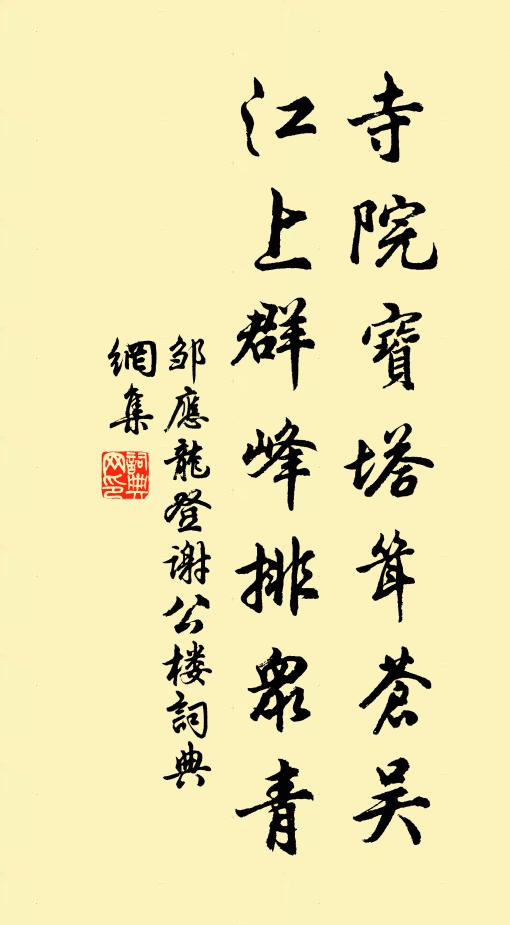 寺院寶塔聳蒼吴
江上群峰排衆青
邹應龍登谢公楼詞典
網集
詞典網印